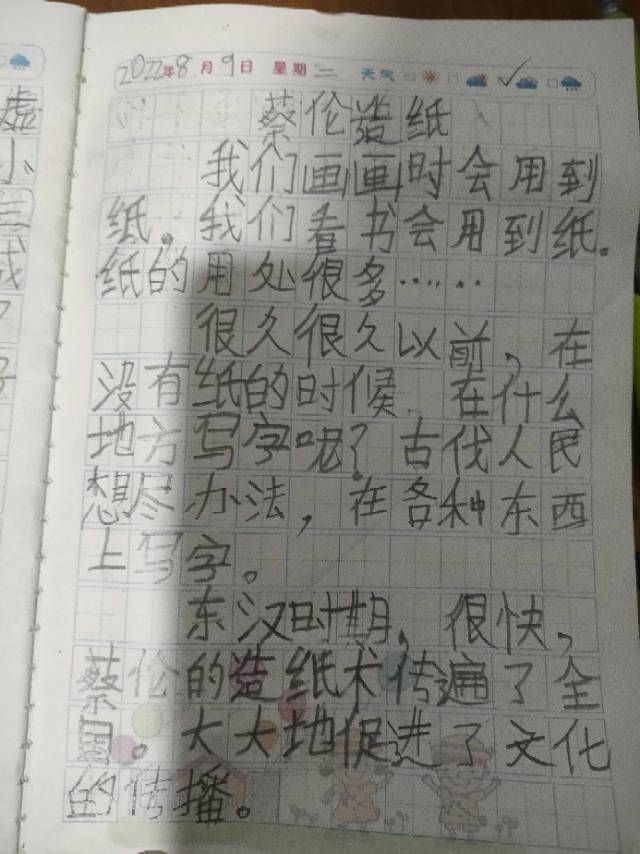 2022年8月9日 星期二 天气
蔡伦造纸
我们画画时会用到
纸，我们看书会用到纸。
纸的用处很多……
很久很久以前，在
没有纸的时候，在什么
地方写字呢？古代人民
想尽办法，在各种东西
上写字。
东汉时期，很快，
蔡伦的造纸术传遍了全
国。大大地促进了文化
的传播。
虚
小
成